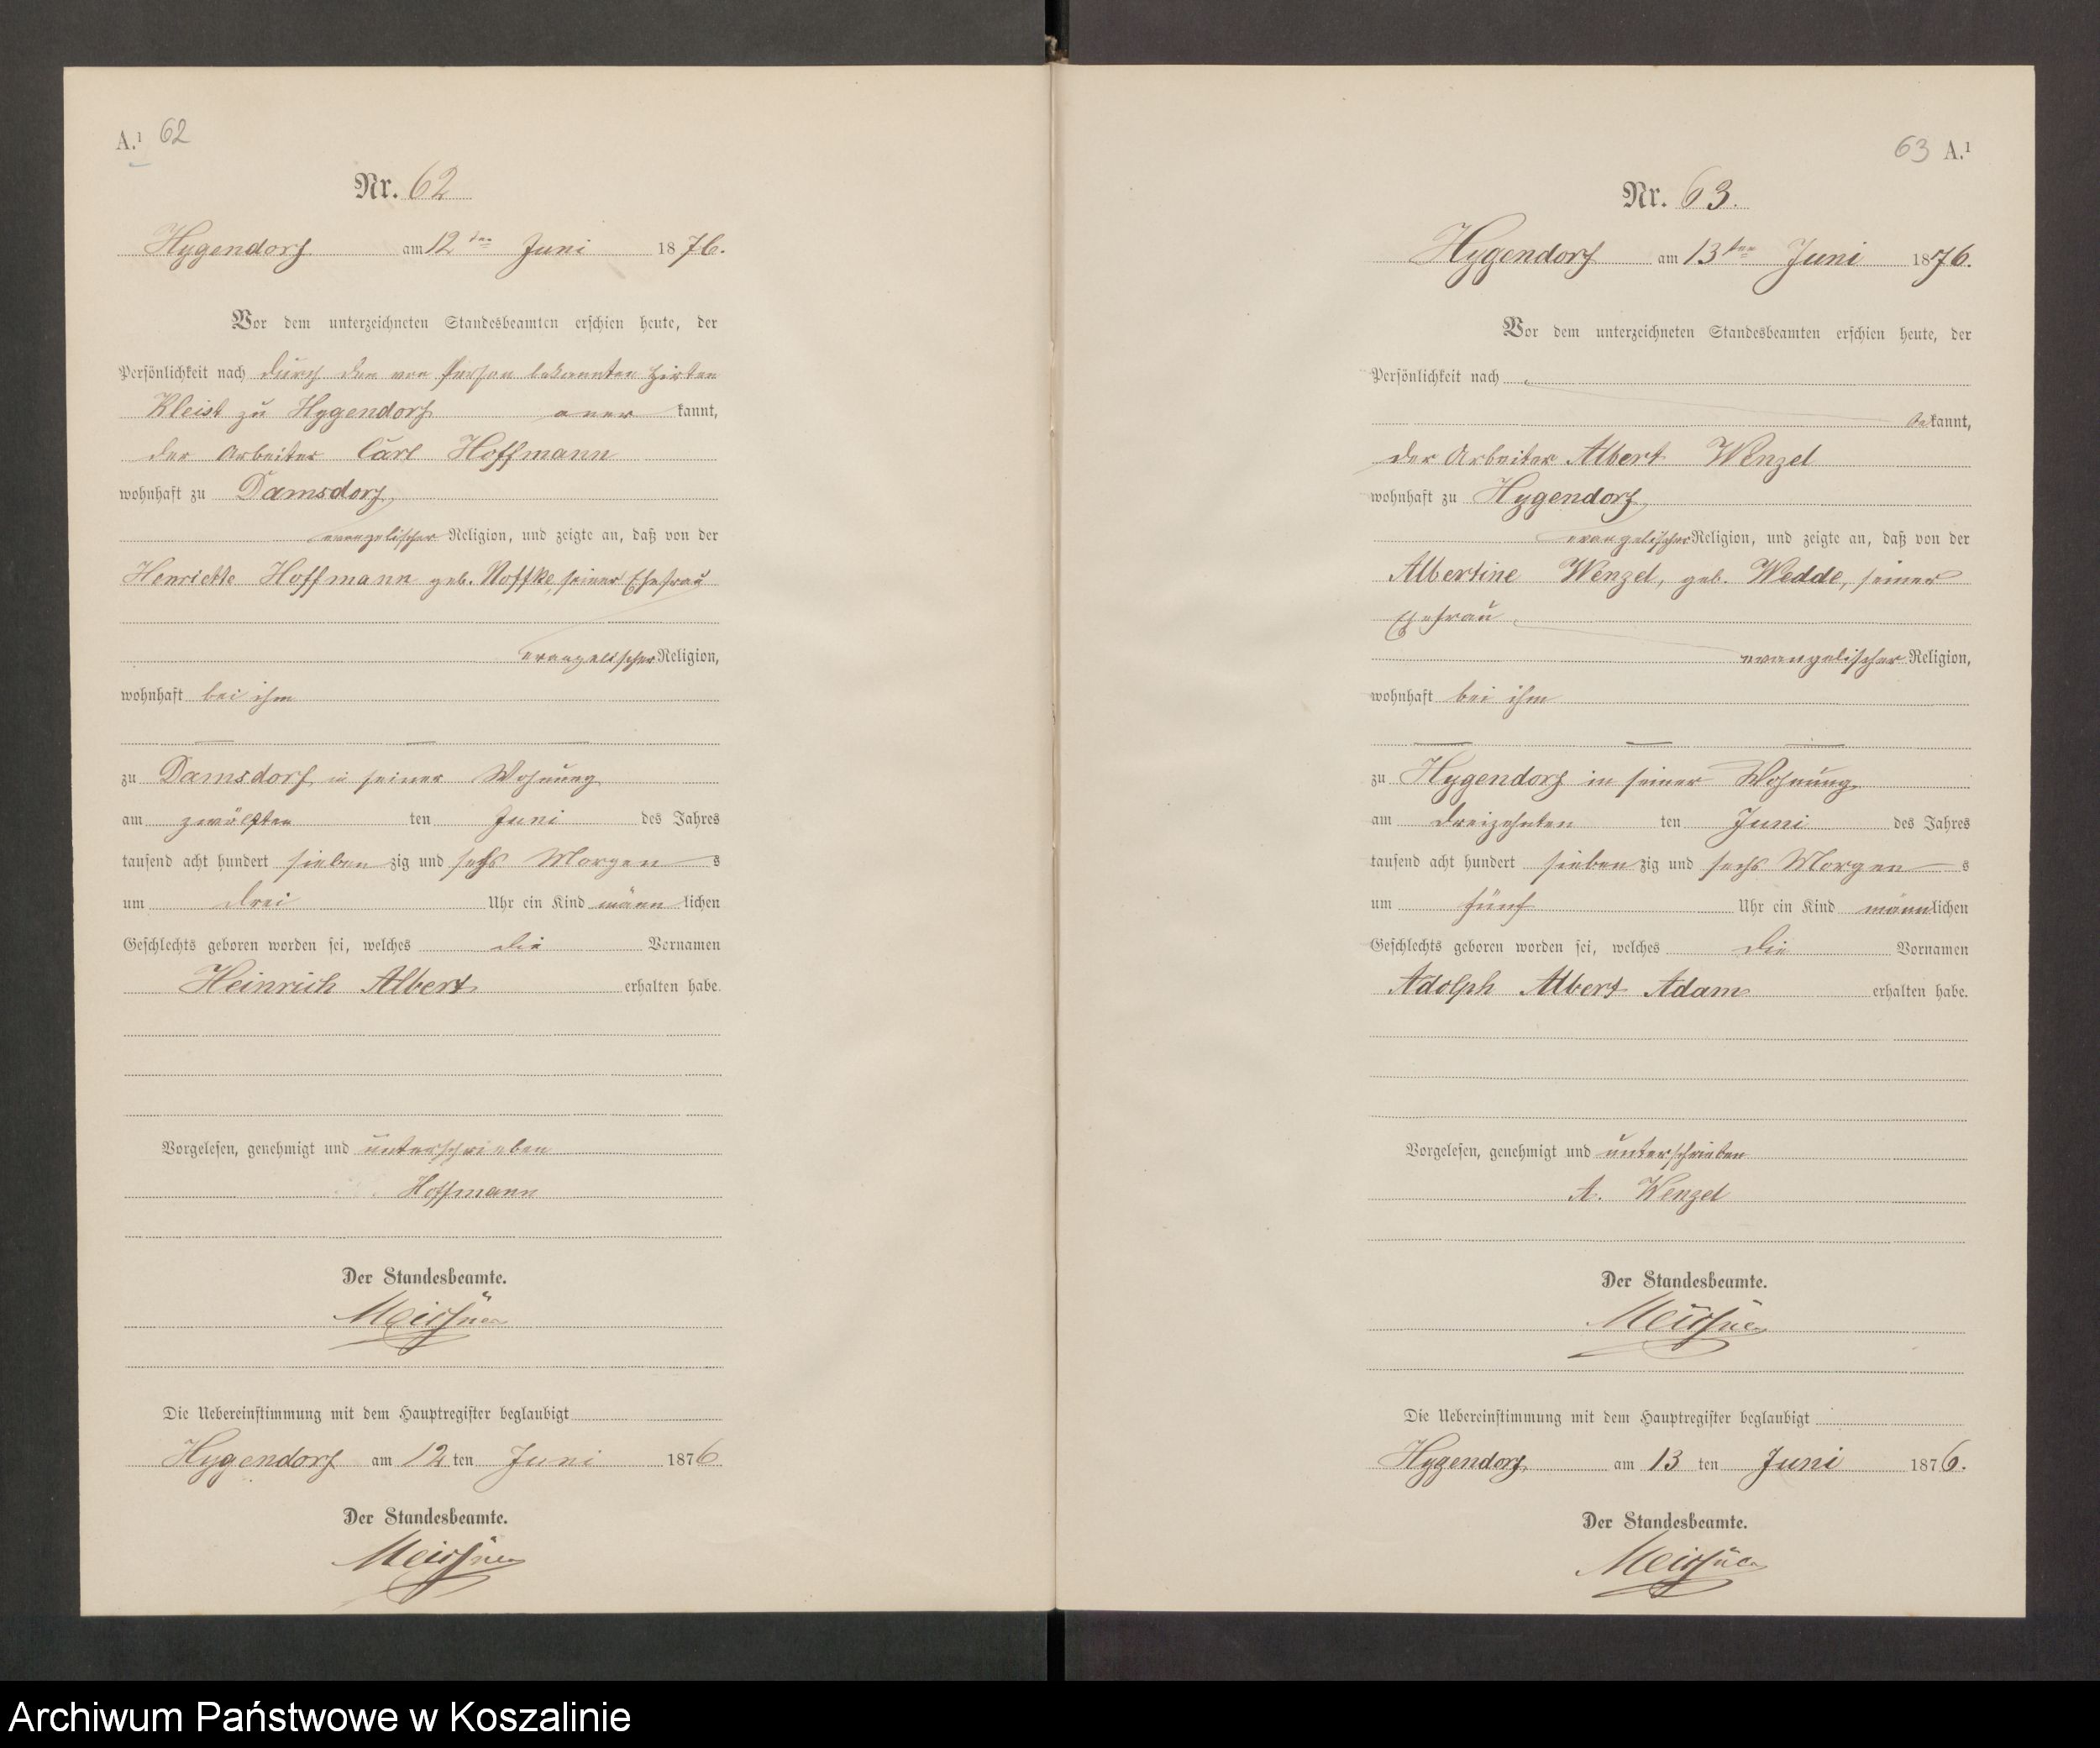 A.¹ 62
Nr. 62
Hygendorf am 12ten Juni 1876.
Vor dem unterzeichneten Standesbeamten erschien heute, der
Persönlichkeit nach durch den von Person bekannten Hirten
Kleist zu Hygendorf anerkannt,
der Arbeiter Carl Hoffmann
wohnhaft zu Damsdorf
evangelischer Religion, und zeigte an, daß von der
Henriette Hoffmann geb. Noffke, seiner Ehefrau
evangelischer Religion,
wohnhaft bei ihm
zu Damsdorf in seiner Wohnung
am zwölften ten Juni des Jahres
tausend acht hundert siebenzig und sechs Morgens
um drei Uhr ein Kind männlichen
Geschlechts geboren worden sei, welches die Vornamen
Heinrich Albert erhalten habe.
Vorgelesen, genehmigt und unterschrieben
Hoffmann
Der Standesbeamte.
Meissner
Die Uebereinstimmung mit dem Hauptregister beglaubigt
Hygendorf am 12 ten Juni 1876
Der Standesbeamte.
Meissner
63 A.¹
Nr. 63.
Hygendorf am 13ten Juni 1876.
Vor dem unterzeichneten Standesbeamten erschien heute, der
Persönlichkeit nach
bekannt,
der Arbeiter Albert Wenzel
wohnhaft zu Hygendorf
evangelischer Religion, und zeigte an, daß von der
Albertine Wenzel, geb. Wedde, seiner
Ehefrau
evangelischer Religion,
wohnhaft bei ihm
zu Hygendorf in seiner Wohnung
am dreizehnten ten Juni des Jahres
tausend acht hundert siebenzig und sechs Morgens
um fünf Uhr ein Kind männlichen
Geschlechts geboren worden sei, welches die Vornamen
Adolph Albert Adam erhalten habe.
Vorgelesen, genehmigt und unterschrieben
A. Wenzel
Der Standesbeamte.
Meissner
Die Uebereinstimmung mit dem Hauptregister beglaubigt
Hygendorf am 13 ten Juni 1876.
Der Standesbeamte.
Meissner
Archiwum Państwowe w Koszalinie